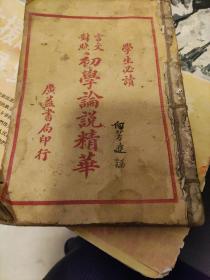 學生必讀
言文
對照
初學論說精華
廣益書局印行